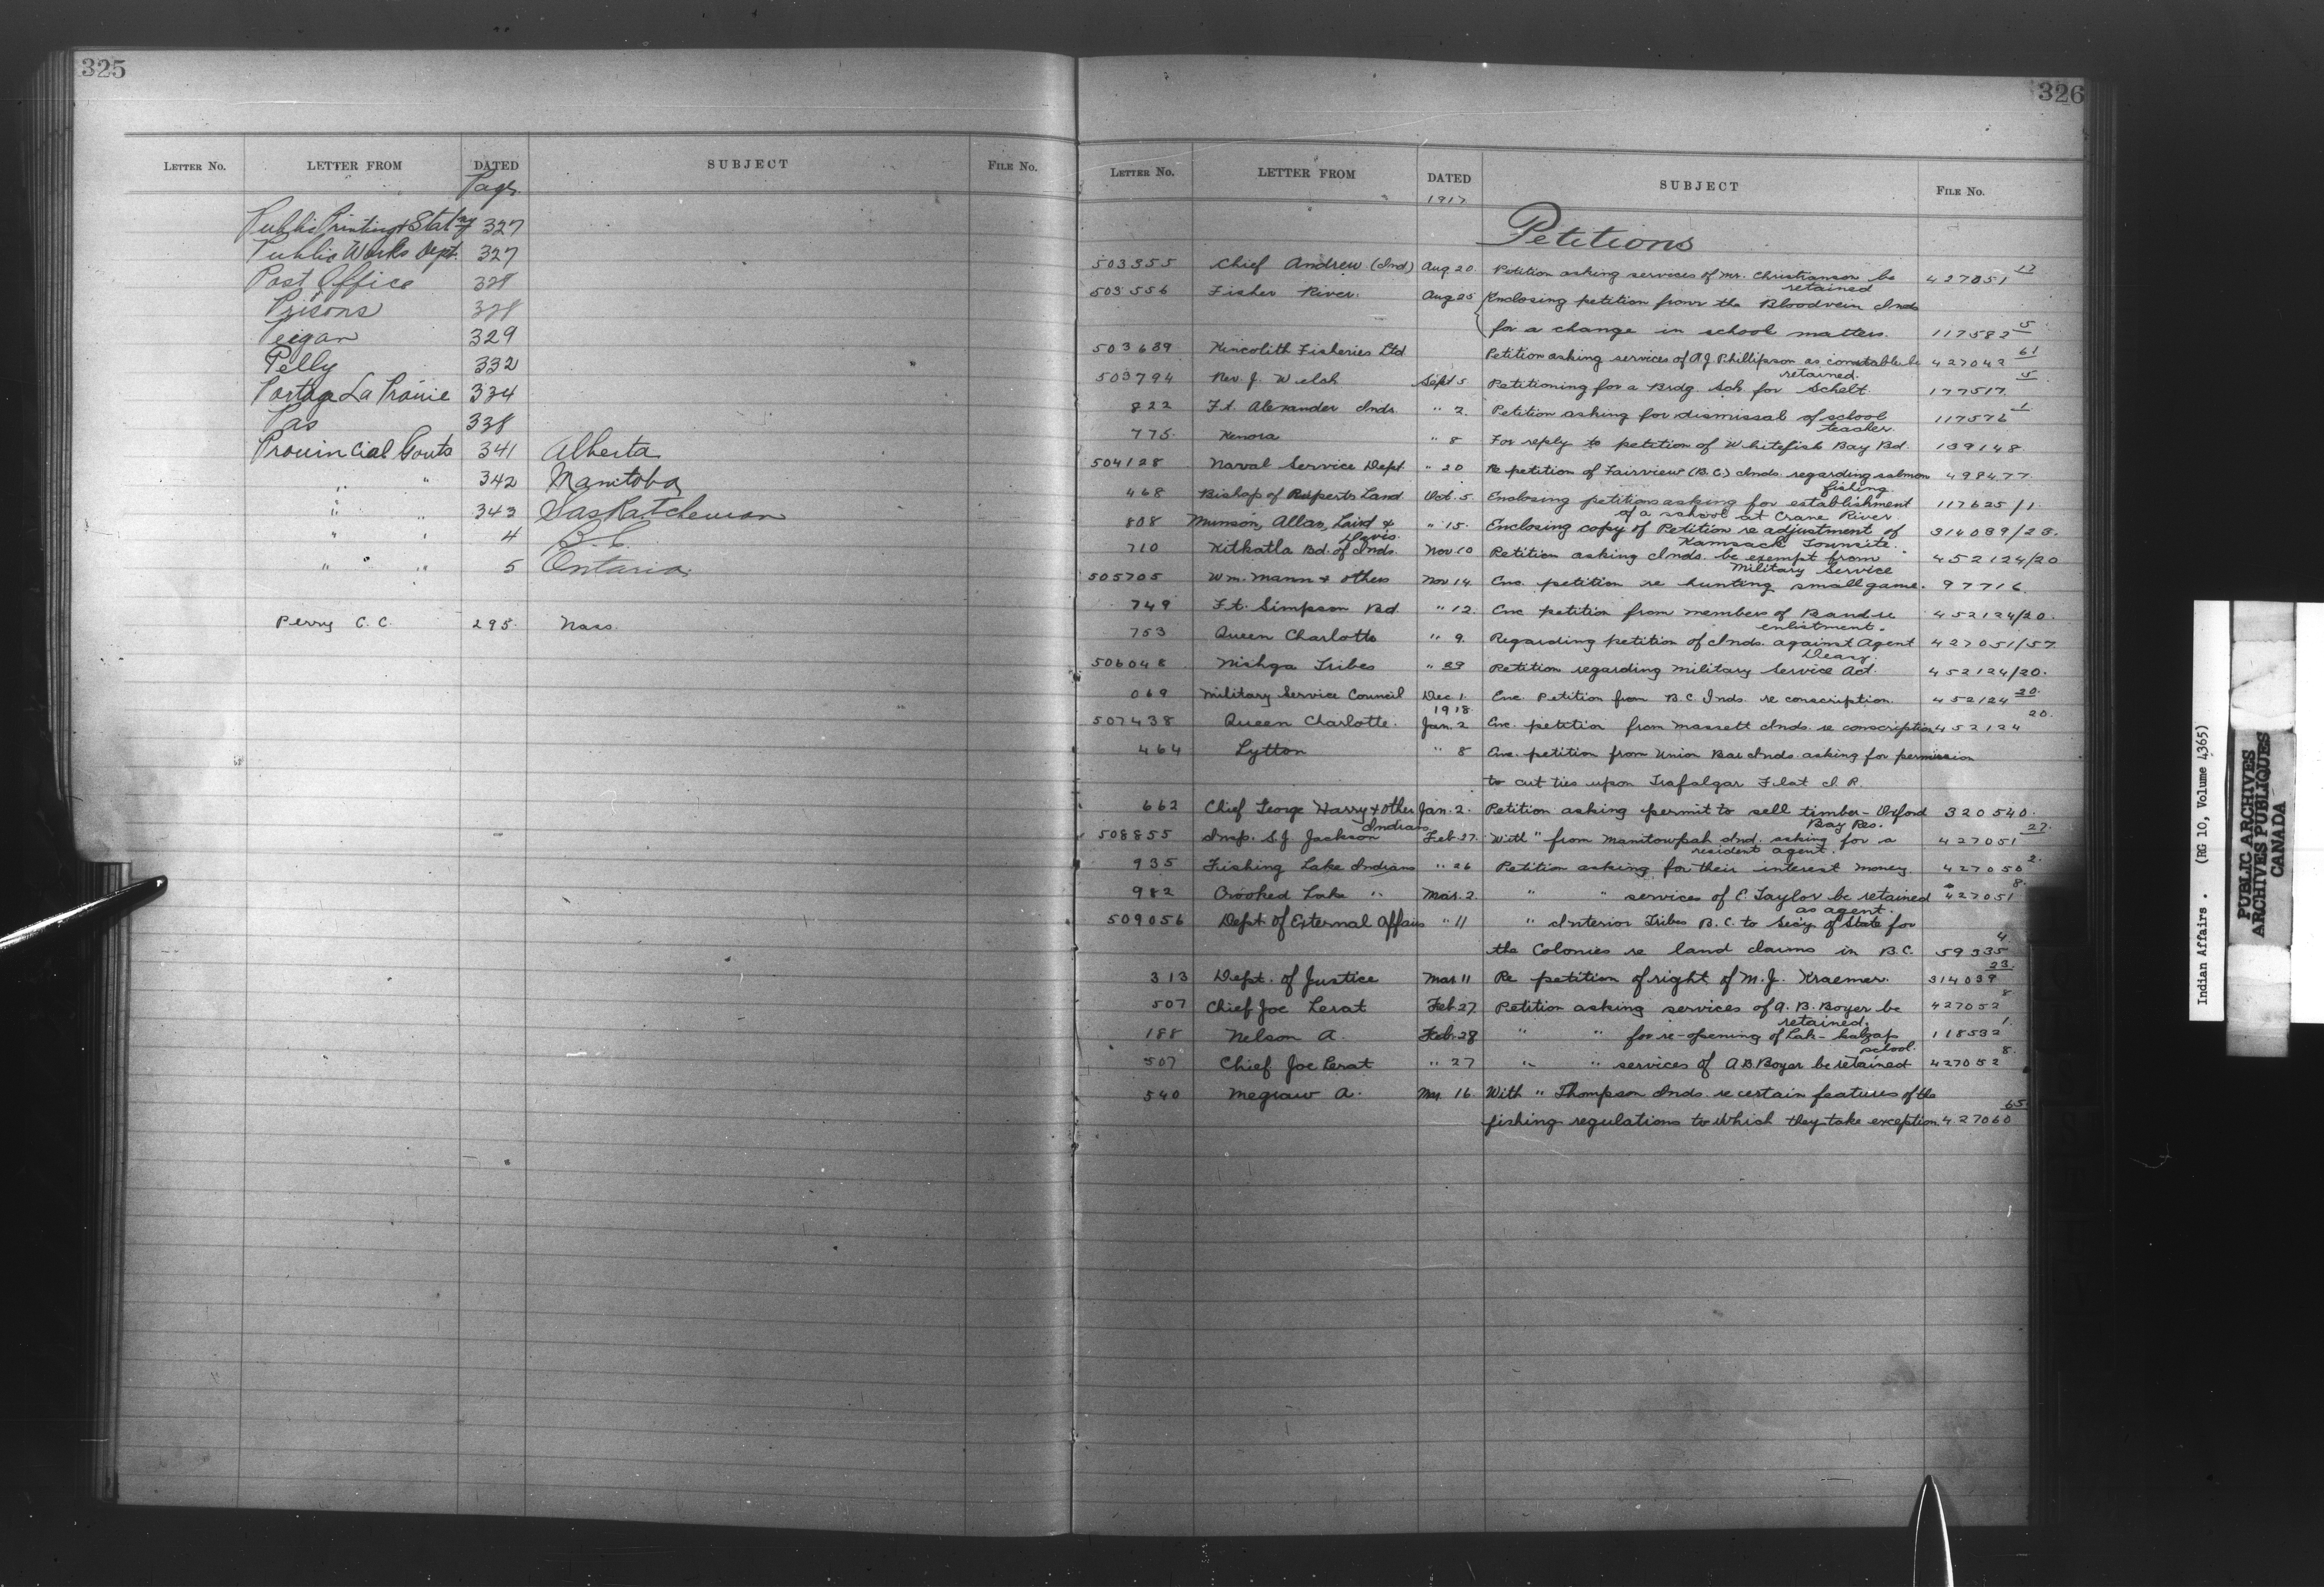 325
LETTER NO. LETTER FROM DATED SUBJECT FILE NO.
Page
Public Printing & Stat'ny 327
Public Works Dept. 327
Post Office 328
Prisons 328
Peigan 329
Pelly 332
Portage La Prairie 334
Pas 338
Provincial Govts 341 Alberta
" " 342 Manitoba
" " 343 Saskatchewan
" " 4 B.C.
" " 5 Ontario
Perry C. C. 295 Nass
326
LETTER NO. LETTER FROM DATED SUBJECT FILE NO.
1917
Petitions
503355 Chief Andrew (Ind) Aug 20 Petition asking services of Mr. Christianson be retained 427051 12
503556 Fisher River. Aug 25 Enclosing petition from the Bloodvein Inds
for a change in school matters. 117582 5
503689 Kincolith Fisheries Ltd Petition asking services of A J Phillipson as constable be retained. 427042 61
503794 Rev. J. Welsh Sept 5 Petitioning for a Brdg. Sch. for Schelt. 177517 5
822 Ft. Alexander Inds. " 2 Petition asking for dismissal of school teacher 117576 1
775 Kenora " 8 For reply to petition of Whitefish Bay Bd. 139148
504128 Naval Service Dept. " 20 Re petition of Fairview (B.C.) Inds. regarding salmon fishing 498477
468 Bishop of Ruperts Land Oct. 5 Enclosing petitions asking for establishment of a school at Crane River 117625/1
808 Munson, Allan, Laird & Davis. " 15 Enclosing copy of Petition re adjustment of Kamsack Townsite. 314039/23.
710 Kitkatla Bd. of Inds. Nov 10 Petition asking Inds. be exempt from Military Service 452124/20
505705 Wm. Mann & others Nov 14. Enc. petition re hunting small game. 97716
749 Ft. Simpson Bd " 12. Enc petition from members of Band re enlistment. 452124/20.
753 Queen Charlotte " 9. Regarding petition of Inds. against Agent Deasy. 427051/57
506048 Nishga Tribes " 29 Petition regarding Military Service Act. 452124/20.
069 Military Service Council Dec 1. Enc. Petition from B.C. Inds re conscription 452124 20.
1918
507438 Queen Charlotte. Jan. 2 Enc. petition from Massett Inds. re conscription 452124 20.
464 Lytton " 8 Enc. petition from Union Bar Inds asking for permission
to cut ties upon Trafalgar Flat I. R.
662 Chief George Harry & other Indians Jan. 2. Petition asking permit to sell timber - Oxford Bay Res. 320540.
508855 Insp. S.J. Jackson Feb 27. With " from Manitowpah Ind. asking for a resident agent. 427051 27.
935 Fishing Lake Indians " 26 Petition asking for their interest money 427050 2.
982 Crooked Lake " Mar. 2. " " services of C. Taylor be retained as agent. 427051 8.
509056 Dept of External Affairs " 11 " Interior Tribes B.C. to Sec'y of State for
the Colonies re land claims in B.C. 59335 4
313 Dept. of Justice Mar 11 Re petition of right of M. J. Kraemer. 314039 23.
507 Chief Joe Lerat Feb 27. Petition asking services of A. B. Boyer be retained. 427052 8
188 Nelson A. Feb. 28 " " for re-opening of Lak-kalzap school. 118532 1.
507 Chief Joe Lerat " 27 " " services of A B Boyer be retained 427052 8.
540 Megraw A. Mar. 16. With " Thompson Inds. re certain features of the
fishing regulations to which they take exception. 427060 65
Indian Affairs. (RG 10, Volume 4365)
PUBLIC ARCHIVES
ARCHIVES PUBLIQUES
CANADA